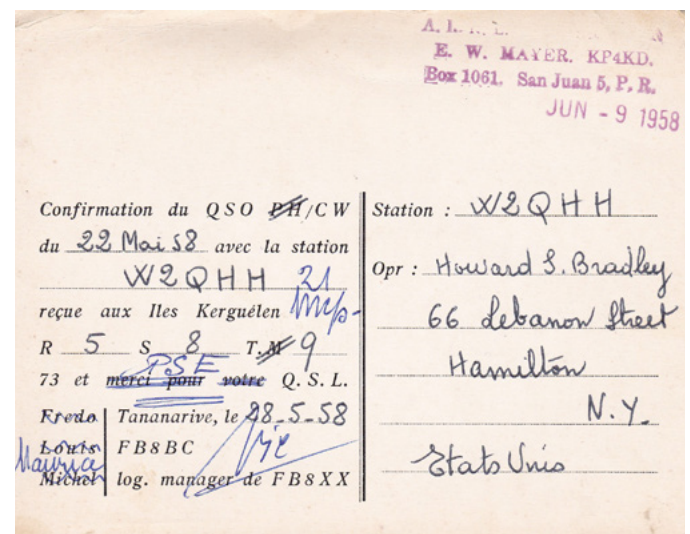 E. W. MAYER. KP4KD.
Box 1061. San Juan 5, P. R.
JUN - 9 1958
Confirmation du QSO PH/CW
du 22 Mai 58 avec la station
W2QHH 21
reçue aux Iles Kerguélen
R 5 S 8 T.M 9
PSE
73 et merci pour votre Q.S.L.
Fredo Tananarive, le 28-5-58
Louis FB8BC
Maurice
Michel log. manager de FB8XX
Station : W2QHH
Opr : Howard S. Bradley
66 Lebanon Street
Hamilton
N.Y.
Etats Unis